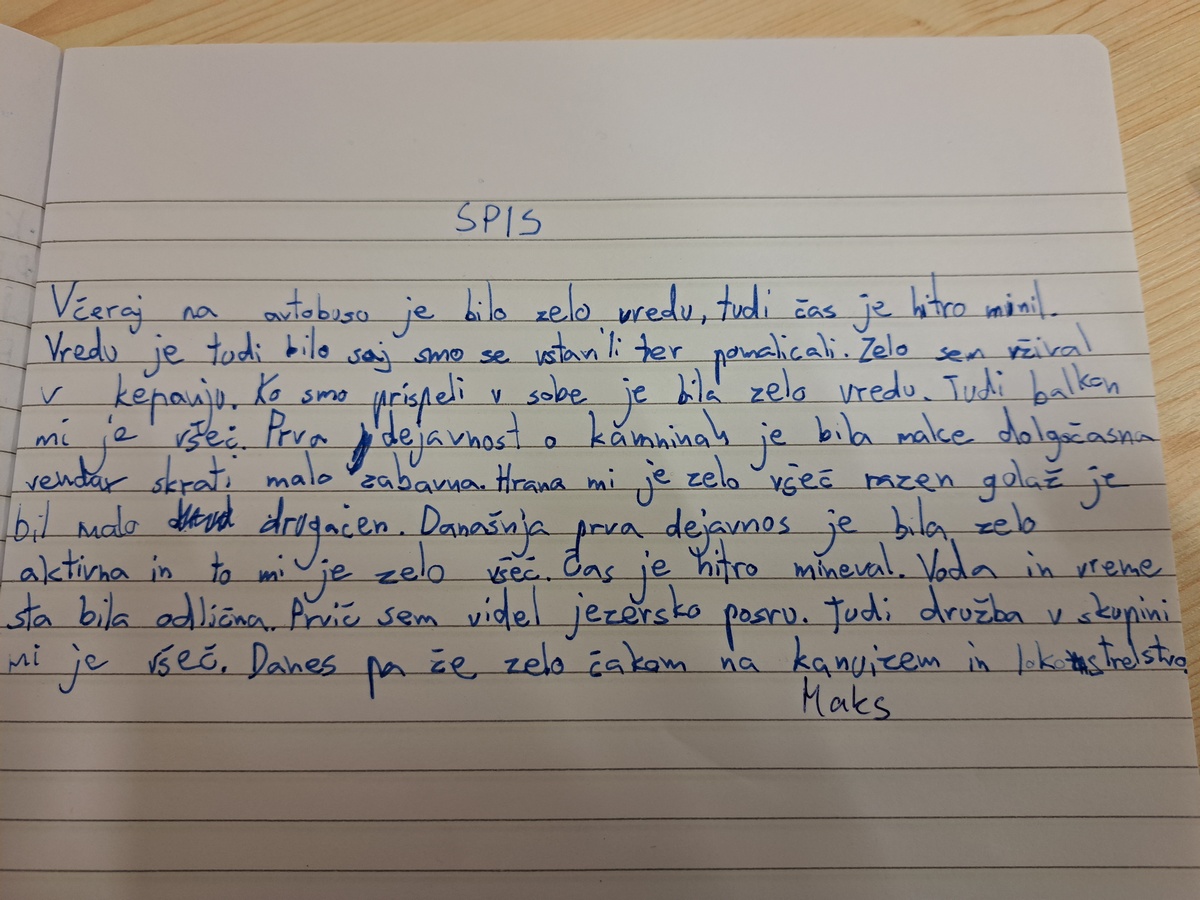 SPIS
Včeraj na avtobuso je bilo zelo vredu, tudi čas je hitro minil.
Vredu je tudi bilo saj smo se vstavili ter pomalicali. Zelo sem vžival
v kepanju. Ko smo prispeli v sobe je bila zelo vredu. Tudi balkon
mi je všeč. Prva dejavnost o kamninah je bila malce dolgočasna
vendar skrati malo zabavna. Hrana mi je zelo všeč razen golaž je
bil malo drugačen. Današnja prva dejavnos je bila zelo
aktivna in to mi je zelo všeč. Čas je hitro mineval. Voda in vreme
sta bila odlična. Prvič sem videl jezersko posrv. Tudi družba v skupini
mi je všeč. Danes pa že zelo čakam na kanuizem in lokostrelstvo.
Maks